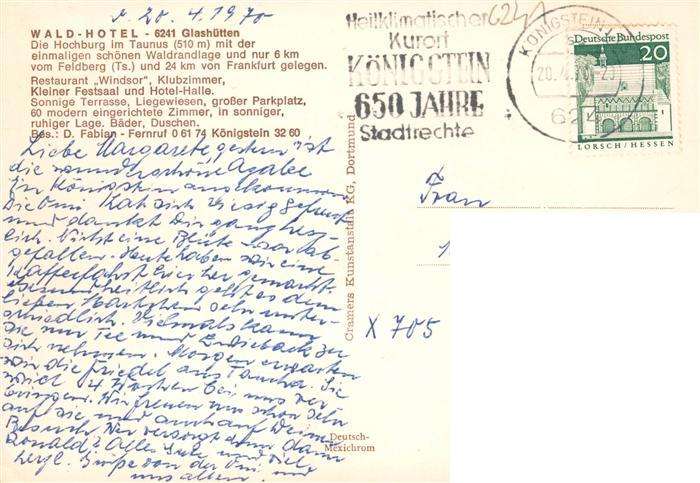 d. 20. 4. 1970
WALD-HOTEL - 6241 Glashütten
Die Hochburg im Taunus (510 m) mit der
einmaligen schönen Waldrandlage und nur 6 km
vom Feldberg (Ts.) und 24 km von Frankfurt gelegen.
Restaurant „Windsor", Klubzimmer,
Kleiner Festsaal und Hotel-Halle.
Sonnige Terrasse, Liegewiesen, großer Parkplatz,
60 modern eingerichtete Zimmer, in sonniger,
ruhiger Lage. Bäder, Duschen.
Bes.: D. Fabian - Fernruf 0 61 74 Königstein 32 60
Liebe Margarete, gestern ist
die wunderschöne Azalee
in Königstein angekommen
Die Omi hat sich riesig gefreut
und dankt Dir ganz herz-
lich. Nicht eine Blüte war ab-
gefallen. Heute haben wir eine
Kaffeefahrt hierher gemacht.
Gesundheitlich geht es dem
lieben sehr unter-
schiedlich. Vielmals kann
sie nur Tee und Zwieback zu
sich nehmen. Morgen erwarten
wir die Friedel aus Taucha. Sie
wird 4 Wochen bei uns ver-
bringen. Wir freuen uns schon sehr
auf sie und auch auf Deinen
Besuch. Wer versorgt denn dann
Ronald? Alles Gute und viele
herzl. Grüße von der Omi und
uns allen.
Cramers Kunstanstalt KG, Dortmund
Deutsch-
Mexichrom
Heilklimatischer
Kurort
KÖNIGSTEIN
650 JAHRE
Stadtrechte
KÖNIGSTEIN
624
Deutsche Bundespost
20
LORSCH/HESSEN
Frau
X 705